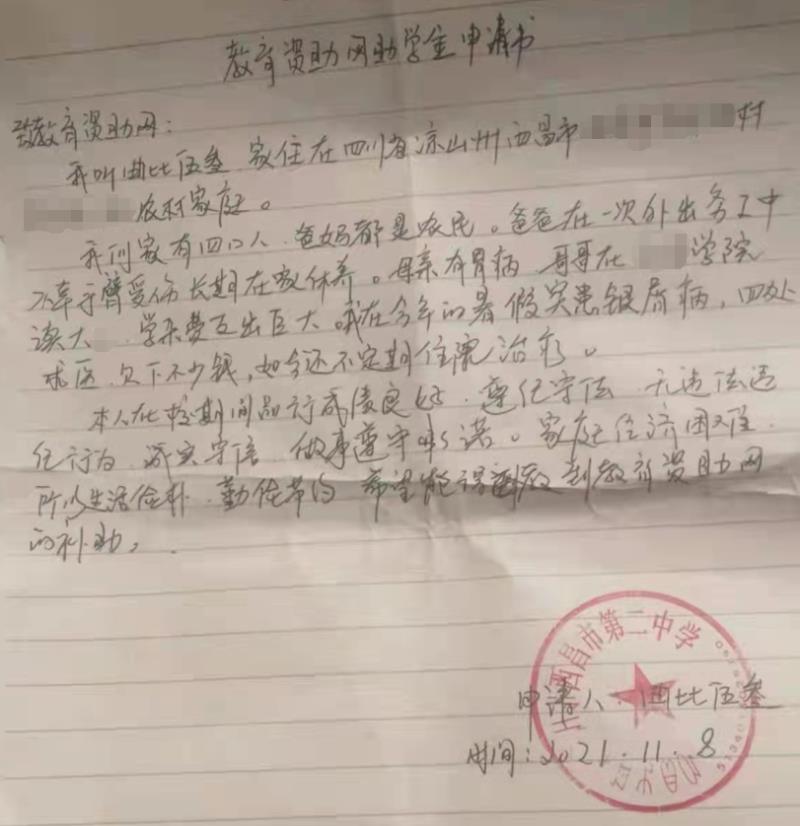 教育资助网助学金申请书
致教育资助网：
我叫曲比伍叁 家住在四川省凉山州西昌市 村
农村家庭。
我们家有四口人、爸妈都是农民。爸爸在一次外出务工中
不幸手臂受伤长期在家休养。母亲有胃病 哥哥在 学院
读大 学杂费支出巨大 我在今年的暑假突患银屑病，四处
求医，欠下不少钱，如今还不定期住院治疗。
本人在校期间品行成绩良好、遵纪守法 无违法违
纪行为、诚实守信 做事遵守 诺。家庭经济困难、
所以生活俭朴、勤俭节约 希望能得到 到教育资助网
的补助。
西昌市第二中学
申请人：曲比伍叁
时间：2021.11.8